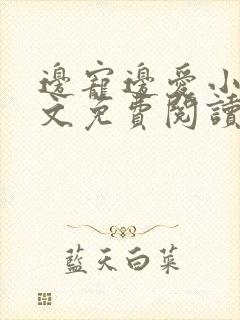 邊寵邊愛小
文免費閱讀
藍天白菜